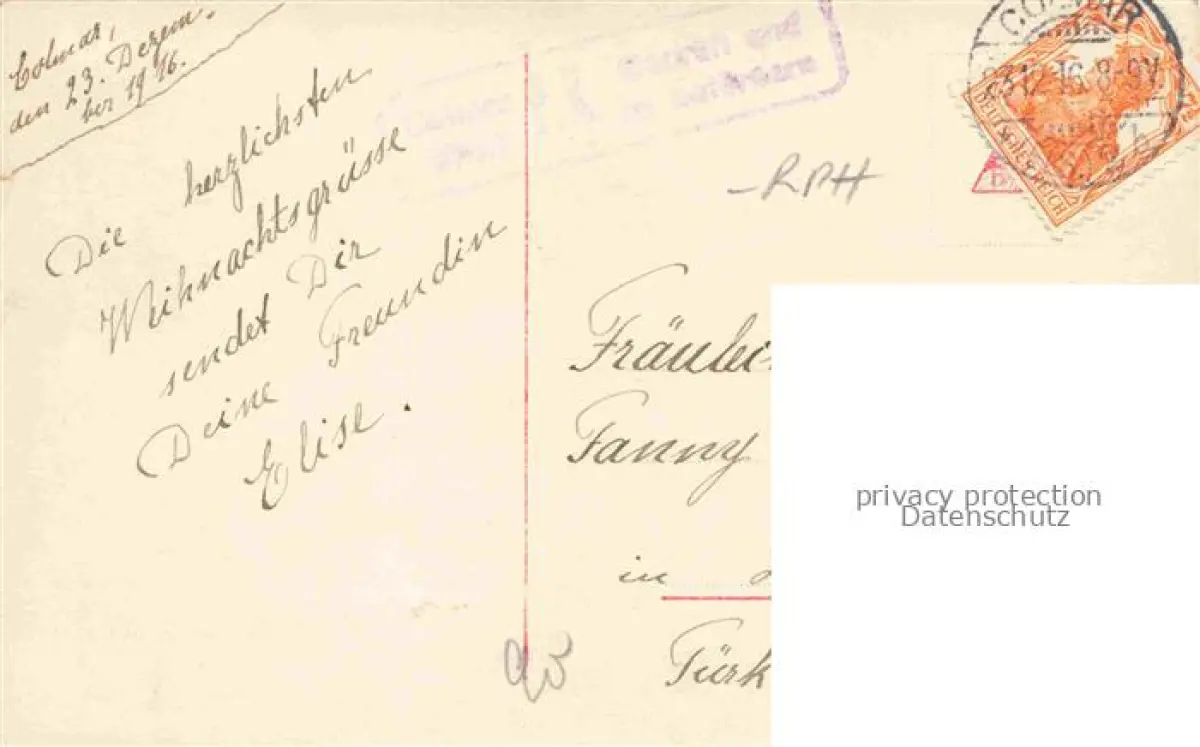 Colmar,
den 23. Dezem-
ber 1916.
Die herzlichsten
Weihnachtsgrüsse
sendet Dir
Deine Freundin
Elise.
COLMAR
DEUTSCHES REICH
-RPH
Fräulei
Fanny
in
Türk
privacy protection
Datenschutz